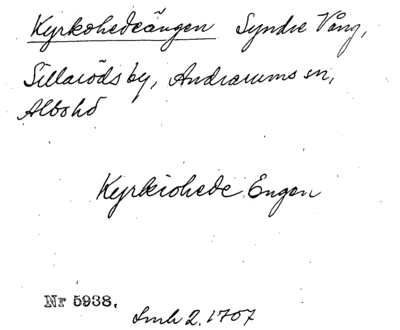 Kyrkohedeängen Syndre Vång,
Sillaröds by, Andrarums sn,
Albo hd
Kyrkiohede Engen
Nr 5938.
Lmk 2. 1707